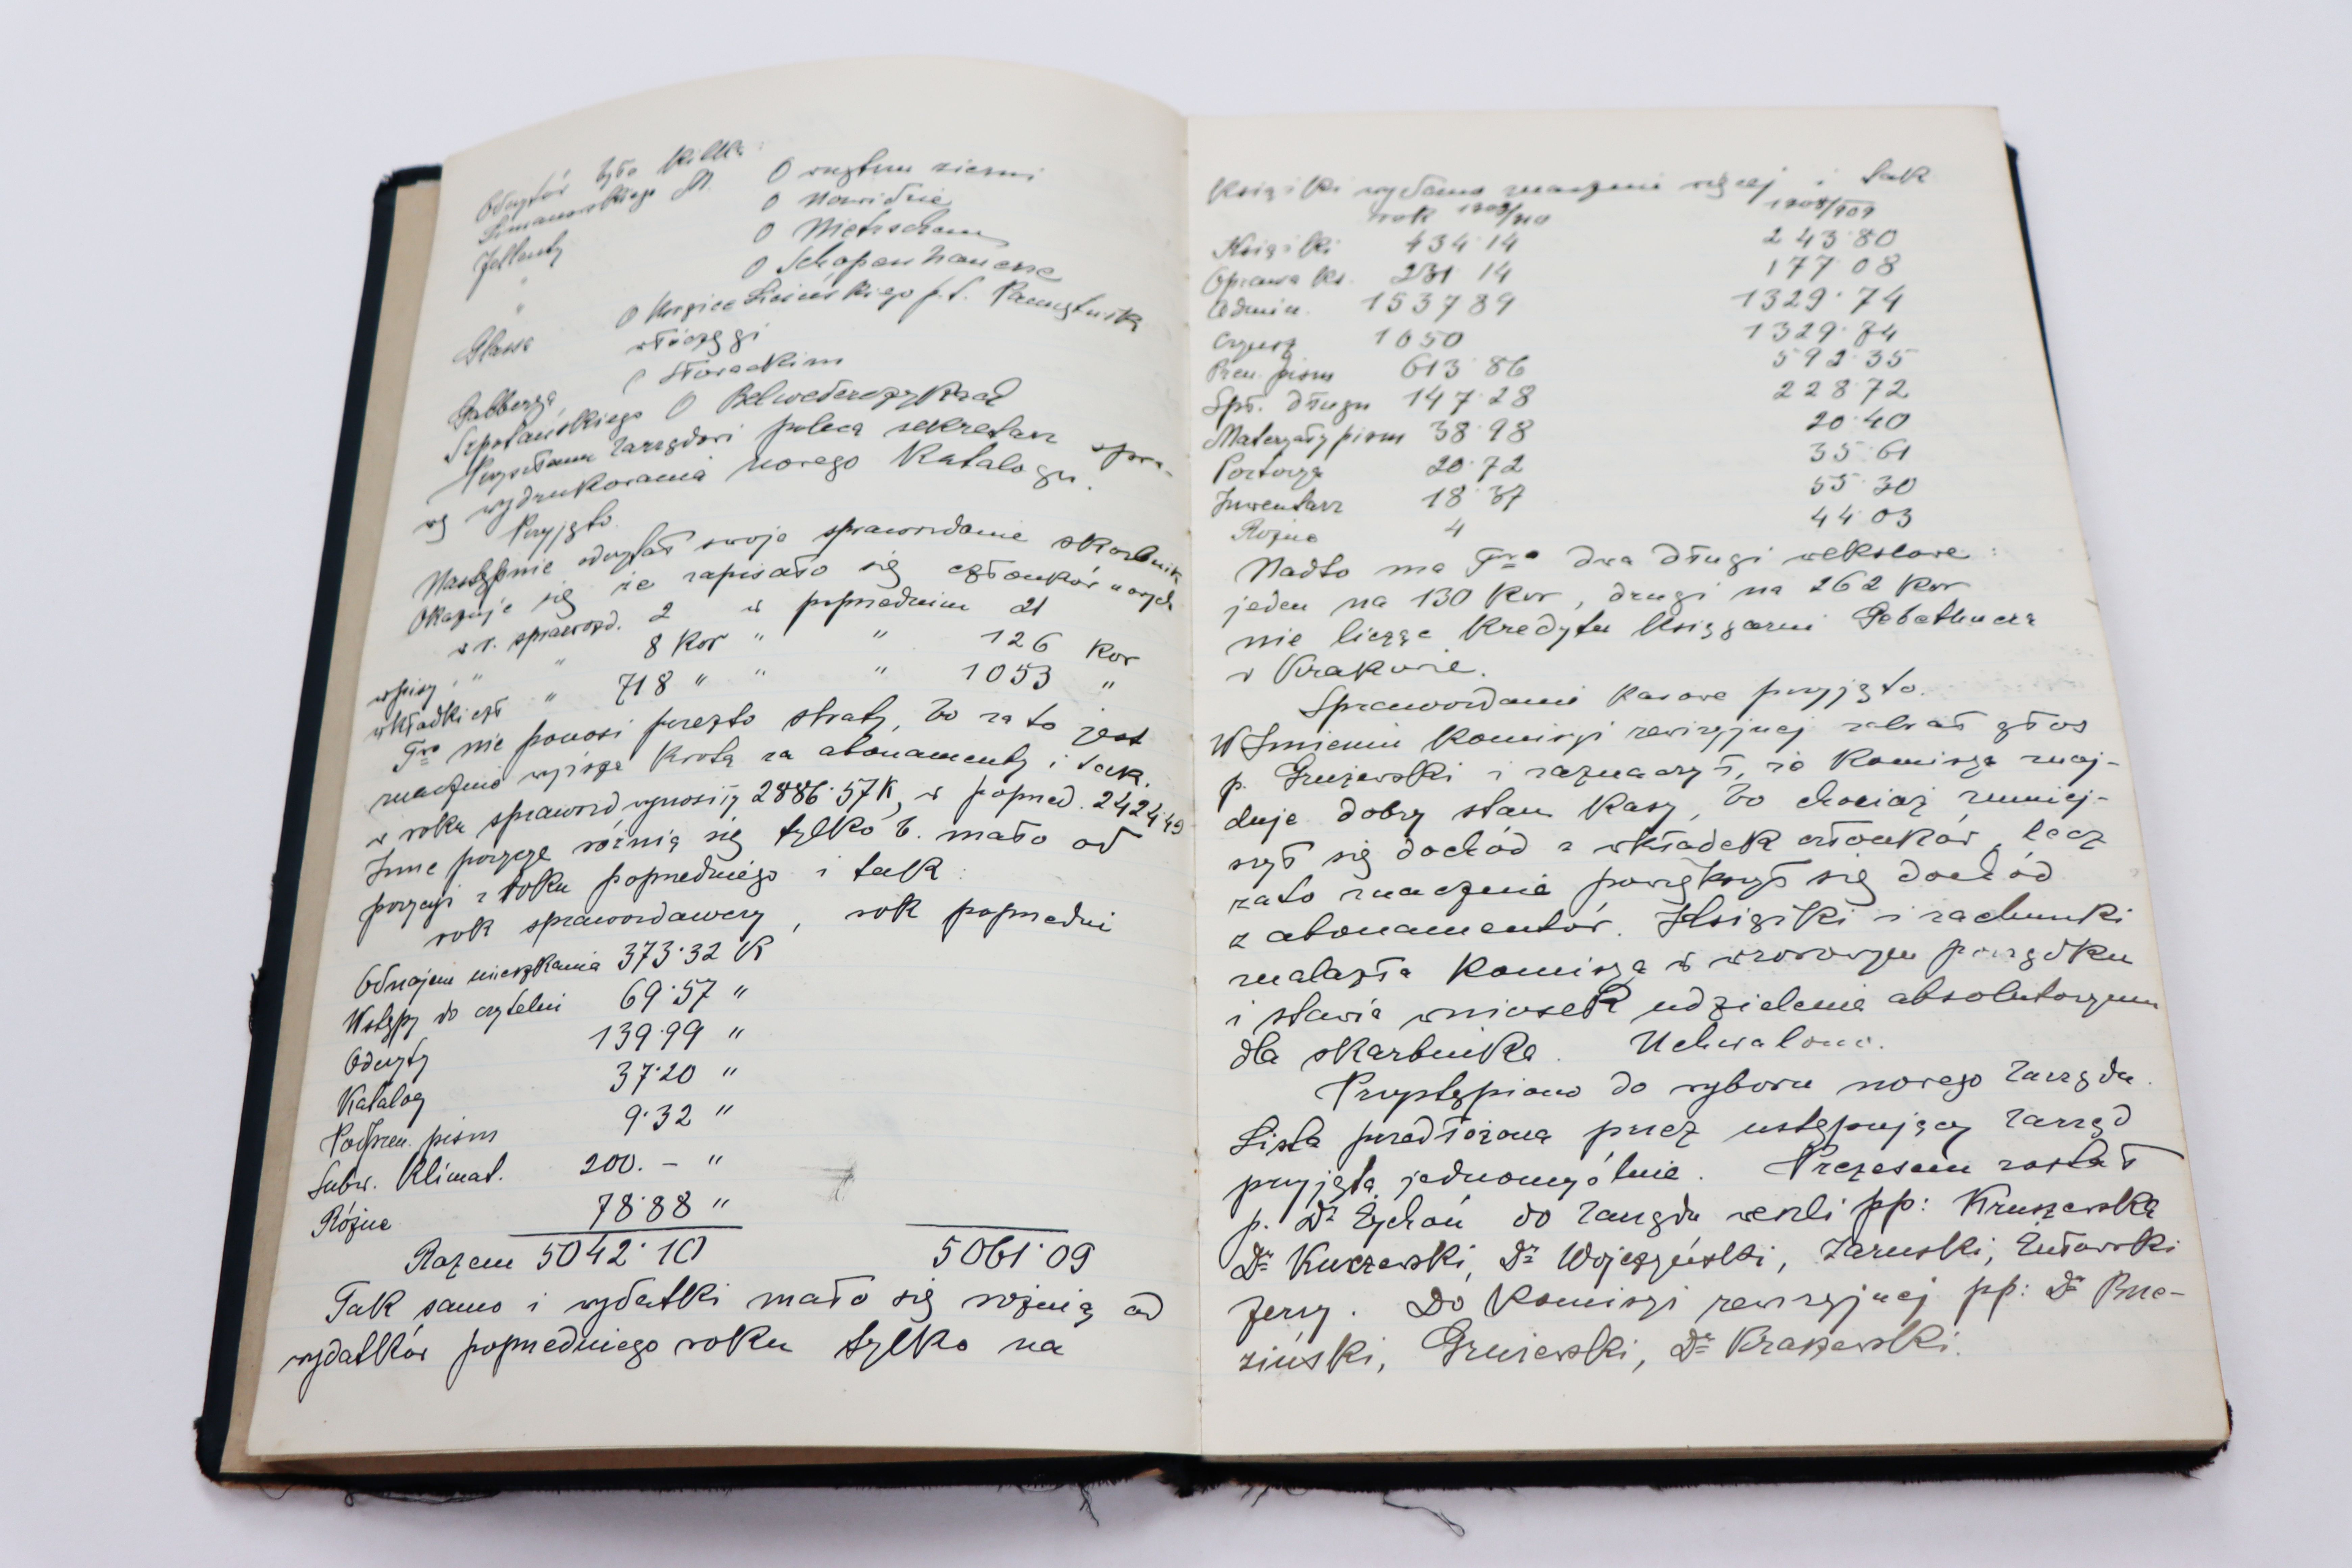 Odczytów było kilka:
Limanowskiego M. O wnętrzu ziemi
Jellenty O Norwidzie
" O Nietzscheum
" O Schopenhauerze
Glassa O książce Licińskiego p.t. Pamiętnik
włóczęgi
O Słowackim
Szpotańskiego O Belwederczykach
Przyszłemu Zarządowi poleca sekretarz spra-
wę wydrukowania nowego Katalogu.
Przyjęto.
Następnie odczytał swoje sprawozdanie skarbnik
Okazuje się że zapisało się członków nowych
w r. sprawozd. 2 w poprzednim 21
wpisy " " 8 Kor " " 126 Kor
wkładki czł " 718 " " " 1053 "
Two nie ponosi przezto straty, bo za to jest
znacznie wyższa kwota za abonamenty i tak.
w roku sprawozd wynosiły 2886·57K, w poprzed. 2424·49
Inne pozycye różnią się tylko b. mało od
pozycyi z roku poprzedniego i tak:
rok sprawozdawczy, rok poprzedni
Odnajem mieszkania 373·32 K
Wstępy do czytelni 69·57 "
Odczyty 139·99 "
Katalog 37·20 "
Podpren. pism 9·32 "
Subw. Klimat. 200.– "
Różne 78·88 "
Razem 5042·10 5061·09
Tak samo i wydatki mało się różnią od
wydatków poprzedniego roku tylko na
Książki wydano znacznie więcej i tak
rok 1909/910 1908/909
Książki 434·14 243·80
Oprawa ks. 231 14 177·08
Admin. 1537 89 1329·74
Czynsz 1650 1329·84
Pren. pism 613·86 592·35
Spł. długu 147·28 228·72
Materyały pism 38·98 20·40
Portorya 20·72 35·61
Inwentarz 18·37 55·30
Rożne 4 44·03
Nadto ma Two dwa długi wekslowe:
jeden na 130 Kor, drugi na 262 Kor
nie licząc Kredytu Księgarni Gebethnera
w Krakowie.
Sprawozdanie Kasowe przyjęto.
W Imieniu Komisyi rewizyjnej zabrał głos
p. Grużewski i zaznaczył, że Komisya znaj-
duje dobry stan Kasy, bo chociaż zmniej-
szył się dochód z wkładek członków, lecz
zato znacznie powiększył się dochód
z abonamentów. Książki i rachunki
znalazła Komisya w wzorowym porządku
i stawia wniosek udzielenia absolutoryum
dla skarbnika. Uchwalono.
Przystąpiono do wyboru nowego Zarządu.
Lista przedłożona przez ustępujący Zarząd
przyjęta jednomyślnie. Prezesem został
p. Dr Żychoń do Zarządu weszli pp: Kruszewska
Dr Kuczewski, Dr Wojczyński, Zaruski, Żuławski
Jerzy. Do Komisyi rewizyjnej pp: Dr Bne-
ziński, Grużewski, Dr Kraszewski.